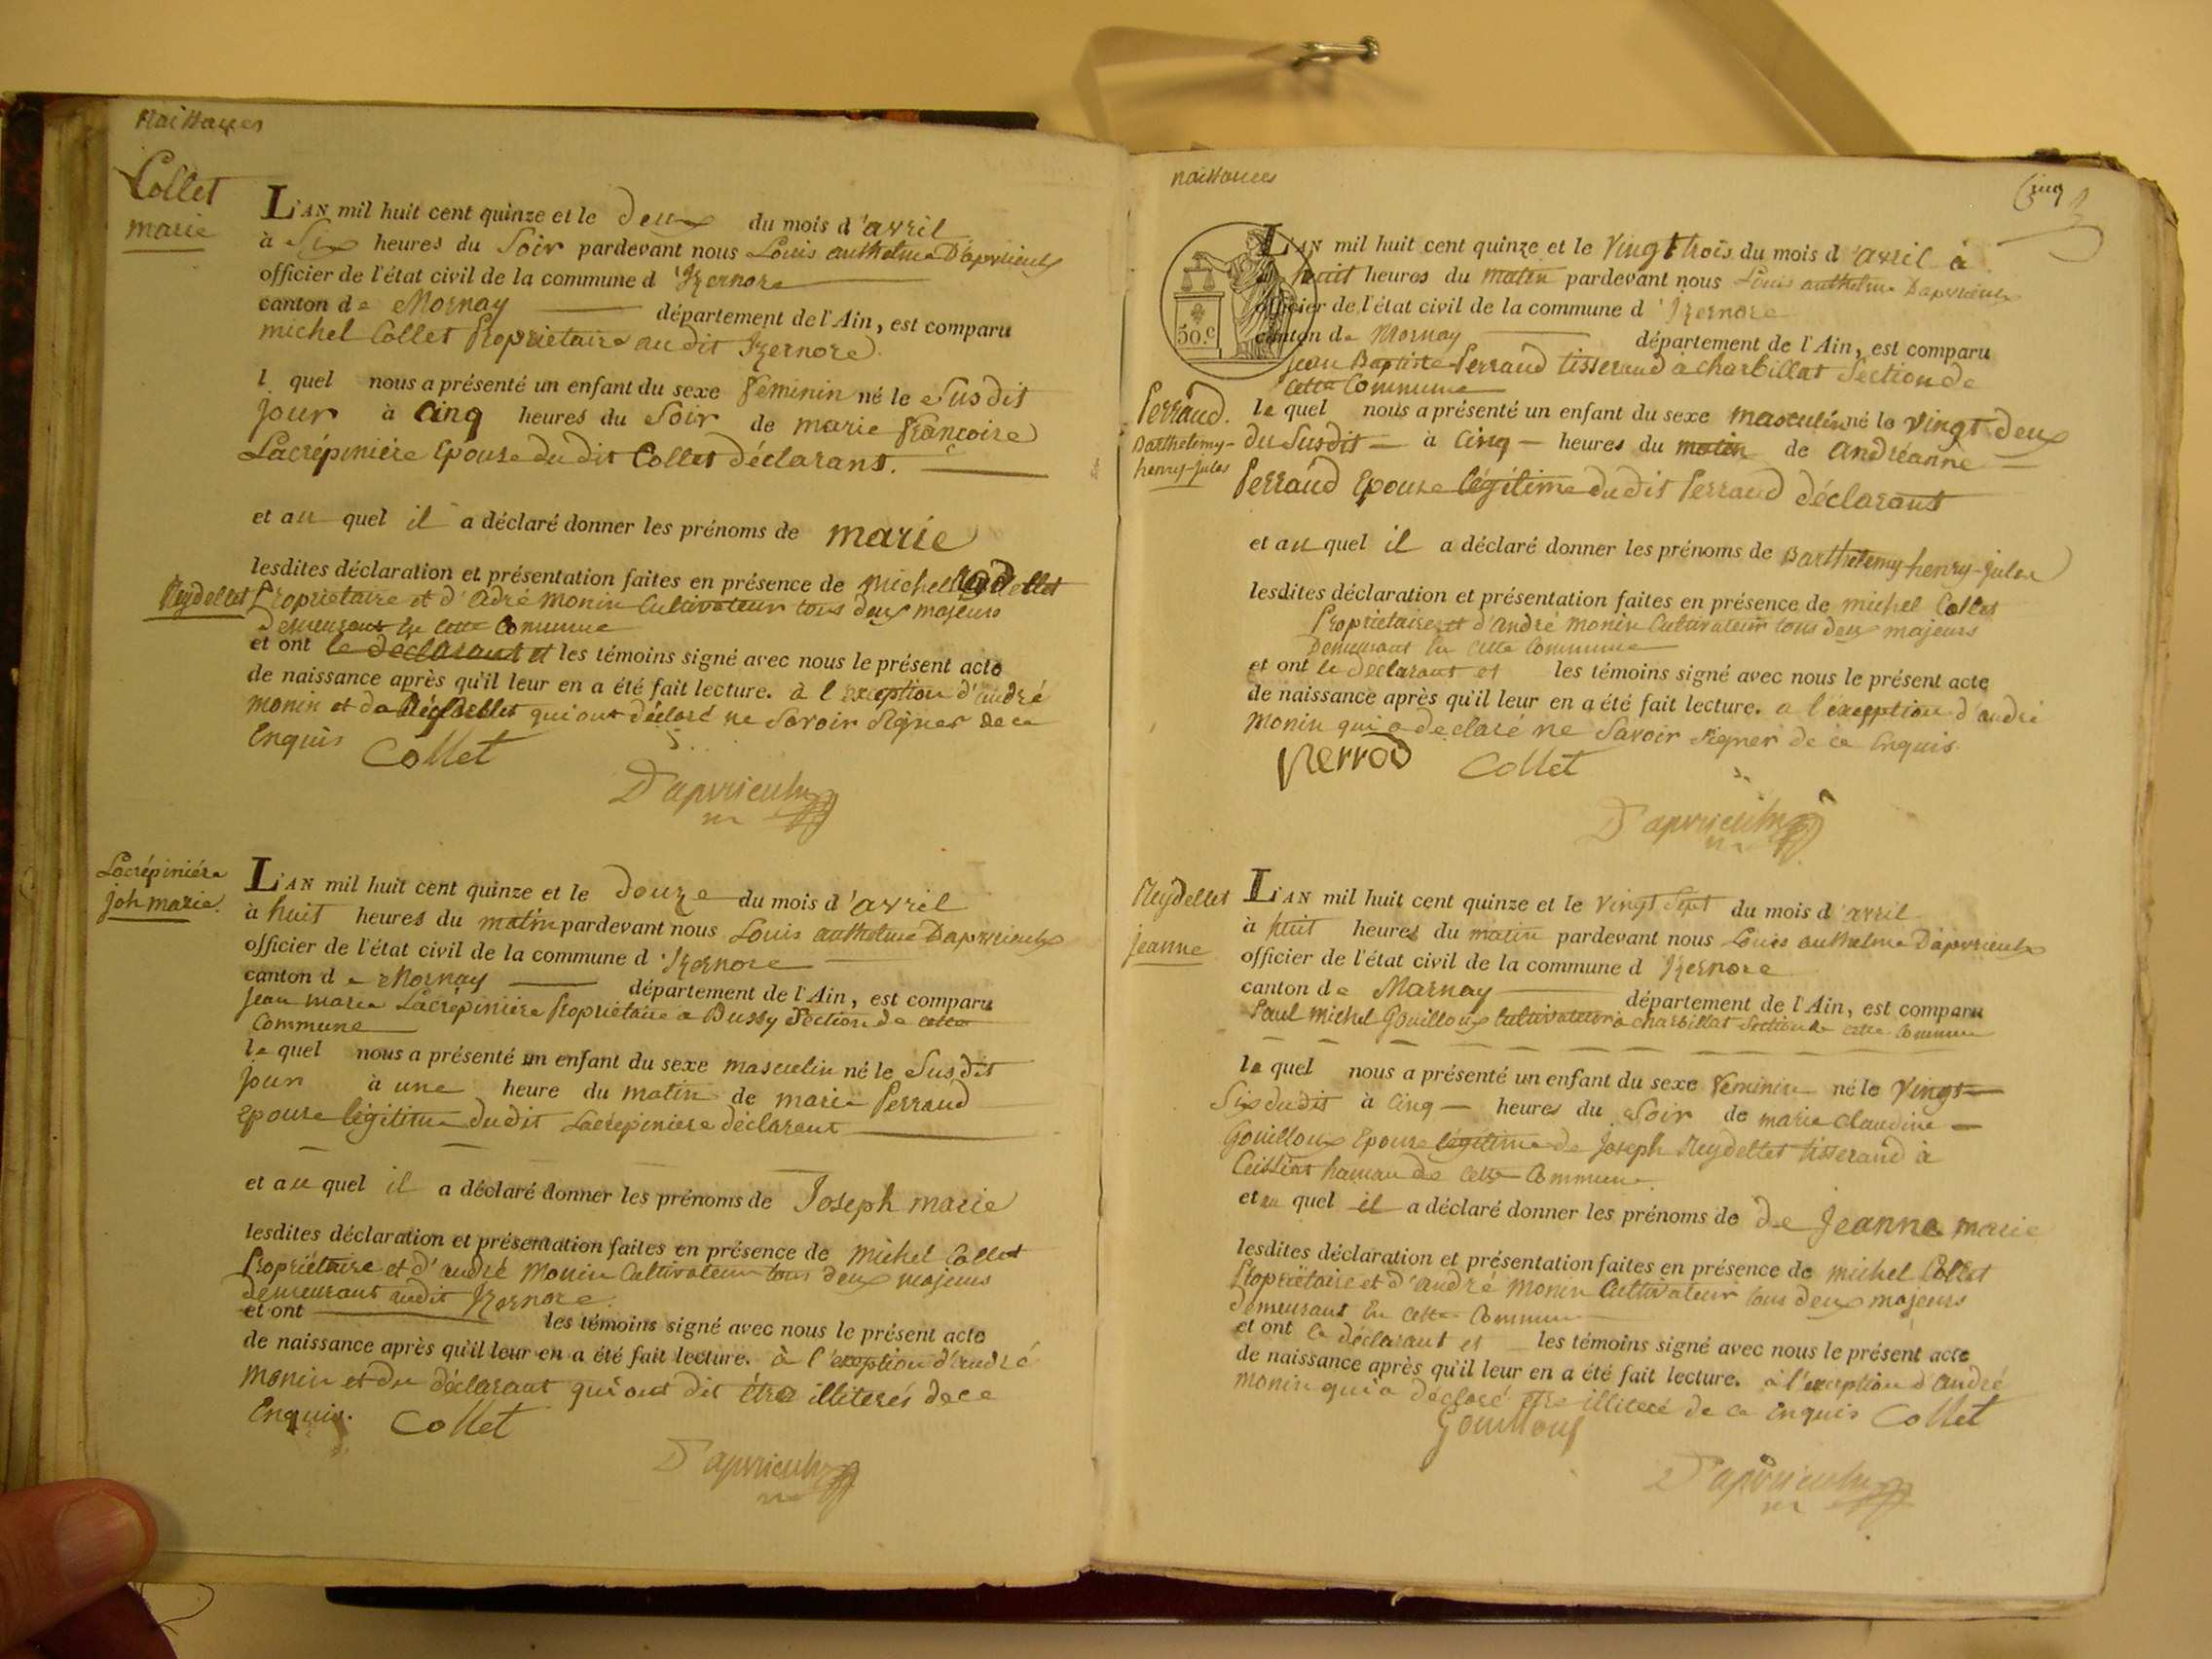 Naissances
Collet
marie
L'AN mil huit cent quinze et le deux du mois d'avril
à Six heures du Soir pardevant nous Louis anthelme D'apvrieulx
officier de l'état civil de la commune d'Izernore
canton de Mornay département de l'Ain, est comparu
michel Collet Propriétaire au dit Izernore
l quel nous a présenté un enfant du sexe féminin né le Susdit
jour à Cinq heures du Soir de marie françoise
Lacrépinière Epouse du dit Collet déclarant.
et au quel il a déclaré donner les prénoms de marie
lesdites déclaration et présentation faites en présence de michel Reydellet
Reydellet Propriétaire et d'adré Monin Cultivateur tous deux majeurs
Demeurant En cette Commune
et ont le déclarant et les témoins signé avec nous le présent acte
de naissance après qu'il leur en a été fait lecture. à l'exception d'andré
Monin et de Reydellet qui ont déclaré ne Savoir Signer de ce
Enquis Collet
D'apvrieulx
Lacrépinière
Joh marie
L'AN mil huit cent quinze et le douze du mois d'avril
à huit heures du matin pardevant nous Louis anthelme D'apvrieulx
officier de l'état civil de la commune d'Izernore
canton de Mornay département de l'Ain, est comparu
Jean marie Lacrépinière Propriétaire a Bussy Section de cette
Commune
le quel nous a présenté un enfant du sexe masculin né le Susdit
Jour à une heure du matin de marie Perraud
epouse légitime du dit Lacrépinière déclarant
et au quel il a déclaré donner les prénoms de Joseph marie
lesdites déclaration et présentation faites en présence de Michel Collet
Propriétaire et d'andré Monin Cultivateur tous deux majeurs
demeurant audit Izernore.
et ont les témoins signé avec nous le présent acte
de naissance après qu'il leur en a été fait lecture. à l'exeption d'andré
Monin et du déclarant qui ont dit être illiterés de ce
Enquis. Collet
D'apvrieulx
naissances
Cinq
L'AN mil huit cent quinze et le Vingt trois du mois d'avril à
huit heures du matin pardevant nous Louis anthelme D'apvrieulx
officier de l'état civil de la commune d'Izernore
50.c
canton de Mornay département de l'Ain, est comparu
Jean Baptiste Perraud tisserand à charbillat Section de
Cette Commune
Perraud.
Barthelemy-
henry-Jules
le quel nous a présenté un enfant du sexe masculin né le Vingt deux
du Susdit à Cinq heures du matin de andréanne
Perraud Epouse légitime du dit Perraud déclarant
et au quel il a déclaré donner les prénoms de Barthelemy henry-Jules
lesdites déclaration et présentation faites en présence de michel Collet
Propriétaire et d'andré Monin Cultivateur tous deux majeurs
Demeurant En cette Commune
et ont le déclarant et les témoins signé avec nous le présent acte
de naissance après qu'il leur en a été fait lecture. a l'exception d'andré
Monin qui a déclaré ne Savoir Signer de ce Enquis
perrod Collet
D'apvrieulx
Reydellet
Jeanne
L'AN mil huit cent quinze et le Vingt Sept du mois d'avril
à huit heures du matin pardevant nous Louis anthelme D'apvrieulx
officier de l'état civil de la commune d'Izernore
canton de Marnay département de l'Ain, est comparu
Paul michel Gouilloux Cultivateur à charbillat Section de cette Commune
le quel nous a présenté un enfant du sexe féminin né le Vingt
Six dudit à Cinq heures du Soir de marie Claudine
Gouilloux Epouse légitime de Joseph Reydellet tisserand à
Ceissiat hameau de cette Commune.
et au quel il a déclaré donner les prénoms de de Jeanne marie
lesdites déclaration et présentation faites en présence de michel Collet
Propriétaire et d'andré Monin Cultivateur tous deux majeurs
Demeurant En cette Commune
et ont le déclarant et les témoins signé avec nous le présent acte
de naissance après qu'il leur en a été fait lecture. à l'exeption d'andré
Monin qui a déclaré être illiteré de ce Enquis Collet
Gouilloux
D'apvrieulx